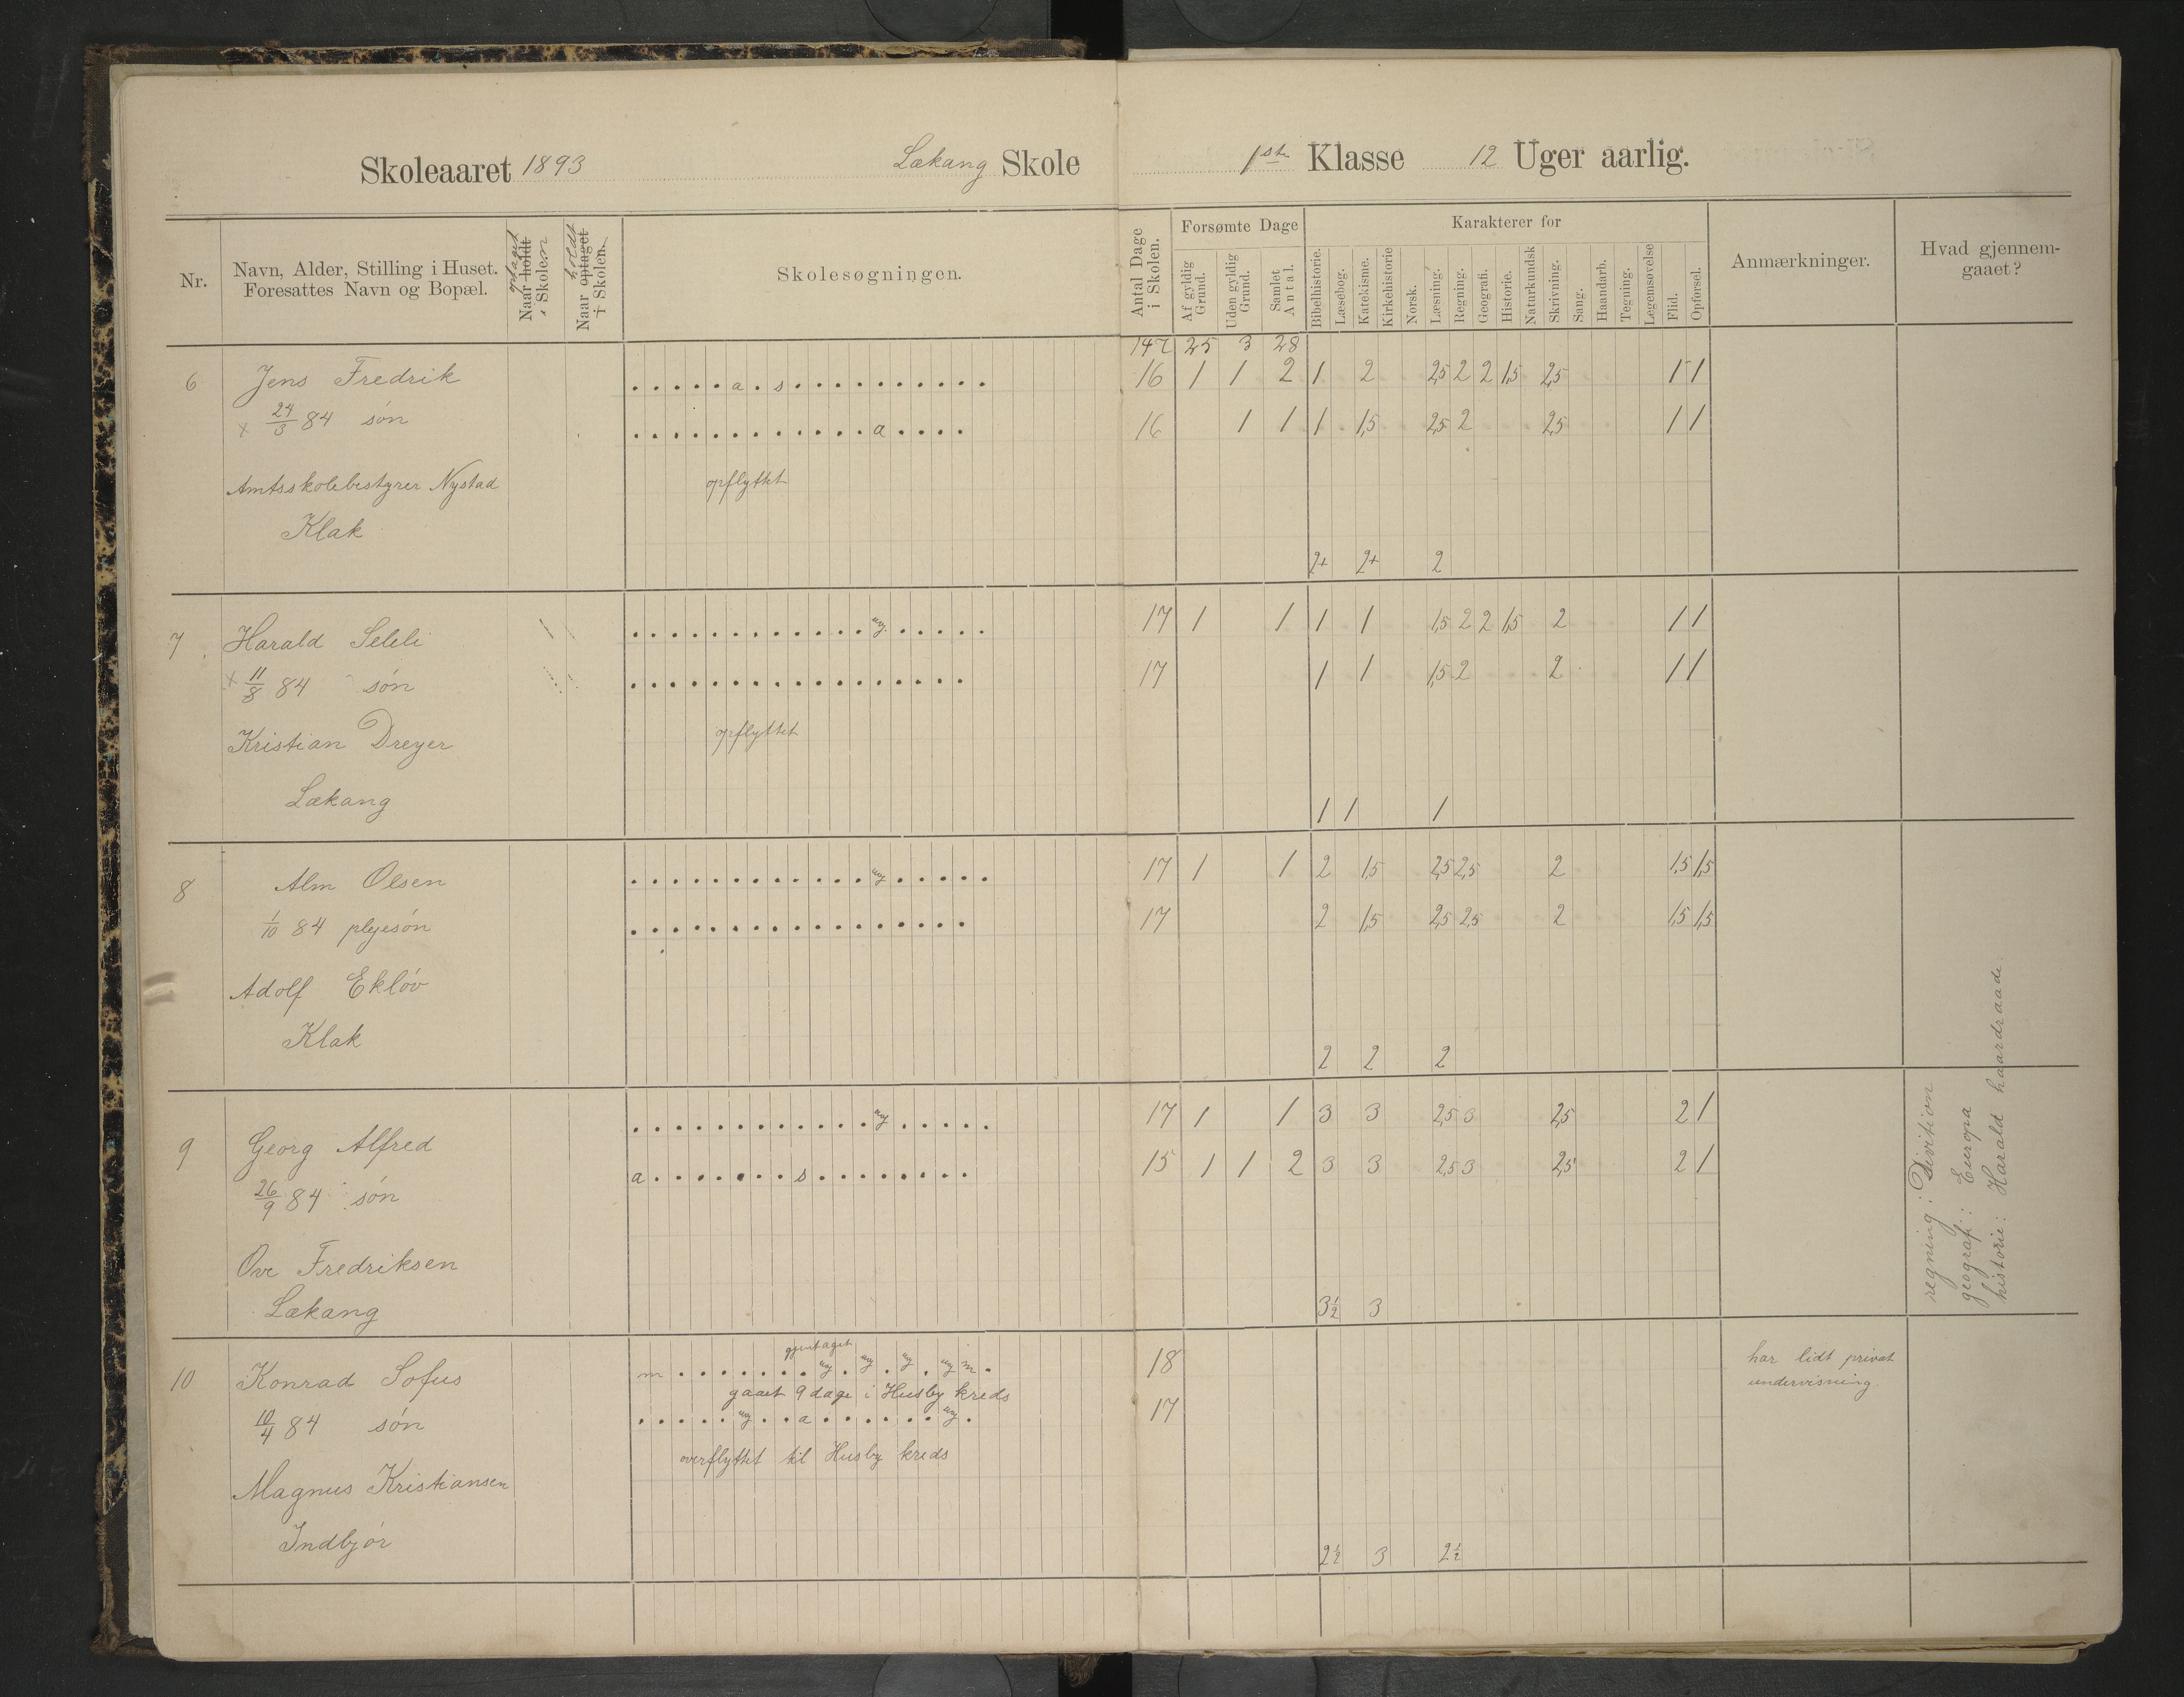 Skoleaaret 1893 Lækang Skole 1ste Klasse 12 Uger aarlig.
Nr. Navn, Alder, Stilling i Huset. Foresattes Navn og Bopæl. Naar holdt optaget i Skolen Naar optaget holdt i Skolen. Skolesøgningen. Antal Dage i Skolen. Forsømte Dage Karakterer for Anmærkninger. Hvad gjennemgaaet?
Af gyldig Grund. Uden gyldig Grund. Samlet Antal. Bibelhistorie. Læsebog. Katekisme. Kirkehistorie Norsk. Læsning. Regning. Geografi. Historie. Naturkundsk Skrivning. Sang. Haandarb. Tegning. Legemsøvelse Flid. Opførsel.
147 25 3 28
6 Jens Fredrik . . . . . a . s . . . . . . . . . . 16 1 1 2 1 2 2,5 2 2 1,5 2,5 1 1
x 24/3 84 søn . . . . . . . . . . . . a . . . . 16 1 1 1 1,5 2,5 2 2,5 1 1
Amtsskolebestyrer Nystad opflyttet
Klak
2+ 2+ 2
7 Harald Seleli . . . . . . . . . . . . ug. . . . . . 17 1 1 1 1 1,5 2 2 1,5 2 1 1
x 11/8 84 søn . . . . . . . . . . . . . . . . . 17 1 1 1,5 2 2 1 1
Kristian Dreyer opflyttet
Lækang 1 1 1
8 Alm Olsen . . . . . . . . . . . . ug . . . . . 17 1 1 2 1,5 2,5 2,5 2 1,5 1,5
1/10 84 plejesøn . . . . . . . . . . . . . . . . . 17 2 1,5 2,5 2,5 2 1,5 1,5
Adolf Ekløv
Klak 2 2 2
9 Georg Alfred . . . . . . . . . . . . ug . . . . . 17 1 1 3 3 2,5 3 2,5 2 1
26/9 84 søn a . . . . . . . s . . . . . . . . 15 1 1 2 3 3 2,5 3 2,5 2 1
Ove Fredriksen
Lækang 3½ 3
regning: Divition
geografi: Europa
historie: Harald haardraade
gjentaget
10 Konrad Sofus m . . . . . . . ug . ug . ug . ug m . 18 har lidt privat
undervisning.
gaaet 9 dage i Husby kreds
10/4 84 søn . . . . . ug . . a . . . . . . ug . 17
overflyttet til Husby kreds
Magnus Kristiansen
Indbjør 2½ 3 2½